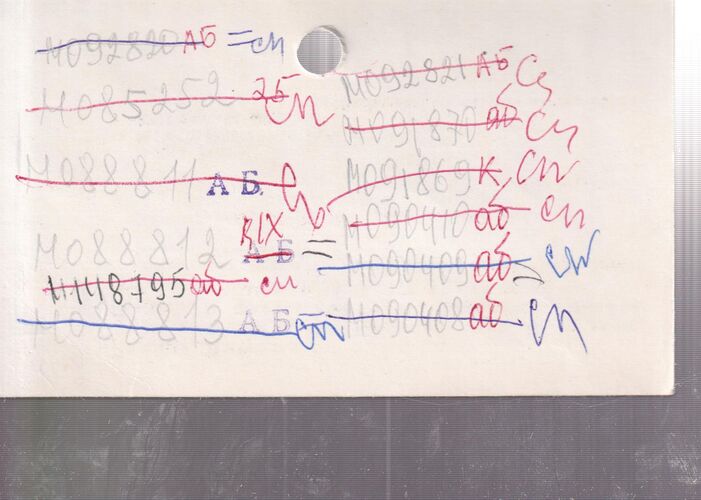 М092820 АБ = сп
М085252 аб сп
М088811 А Б.
М088812 А Б =
М118795 аб сп
М088813 А Б сп
М092821 АБ
М091870 аб
М091869 К
М090410 аб сп
М090409 аб
М090408 аб сп